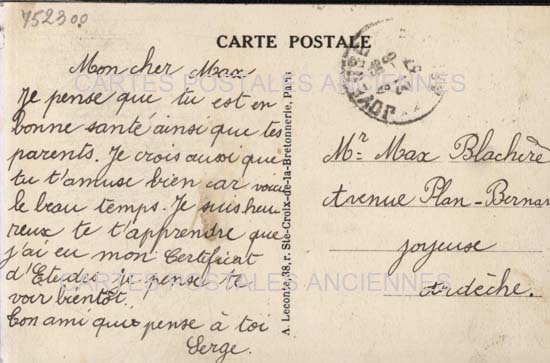 75230
CARTE POSTALE
Mon cher Max
Je pense que tu est en
bonne santé ainsi que tes
parents. Je crois aussi que
tu t'amuse bien car voici
le beau temps. Je suis heu-
reux te t'apprendre que
j'ai eu mon Certificat
d'Etudes je pense te
voir bientôt.
Ton ami qui pense à toi
Serge.
A. Leconte, 38, r. Ste-Croix-de-la-Bretonnerie, Paris
JOYEUSE
Mr Max Blachère
Avenue Plan-Bernar
Joyeuse
Ardèche.
CARTES POSTALES ANCIENNES
CARTES POSTALES ANCIENNES